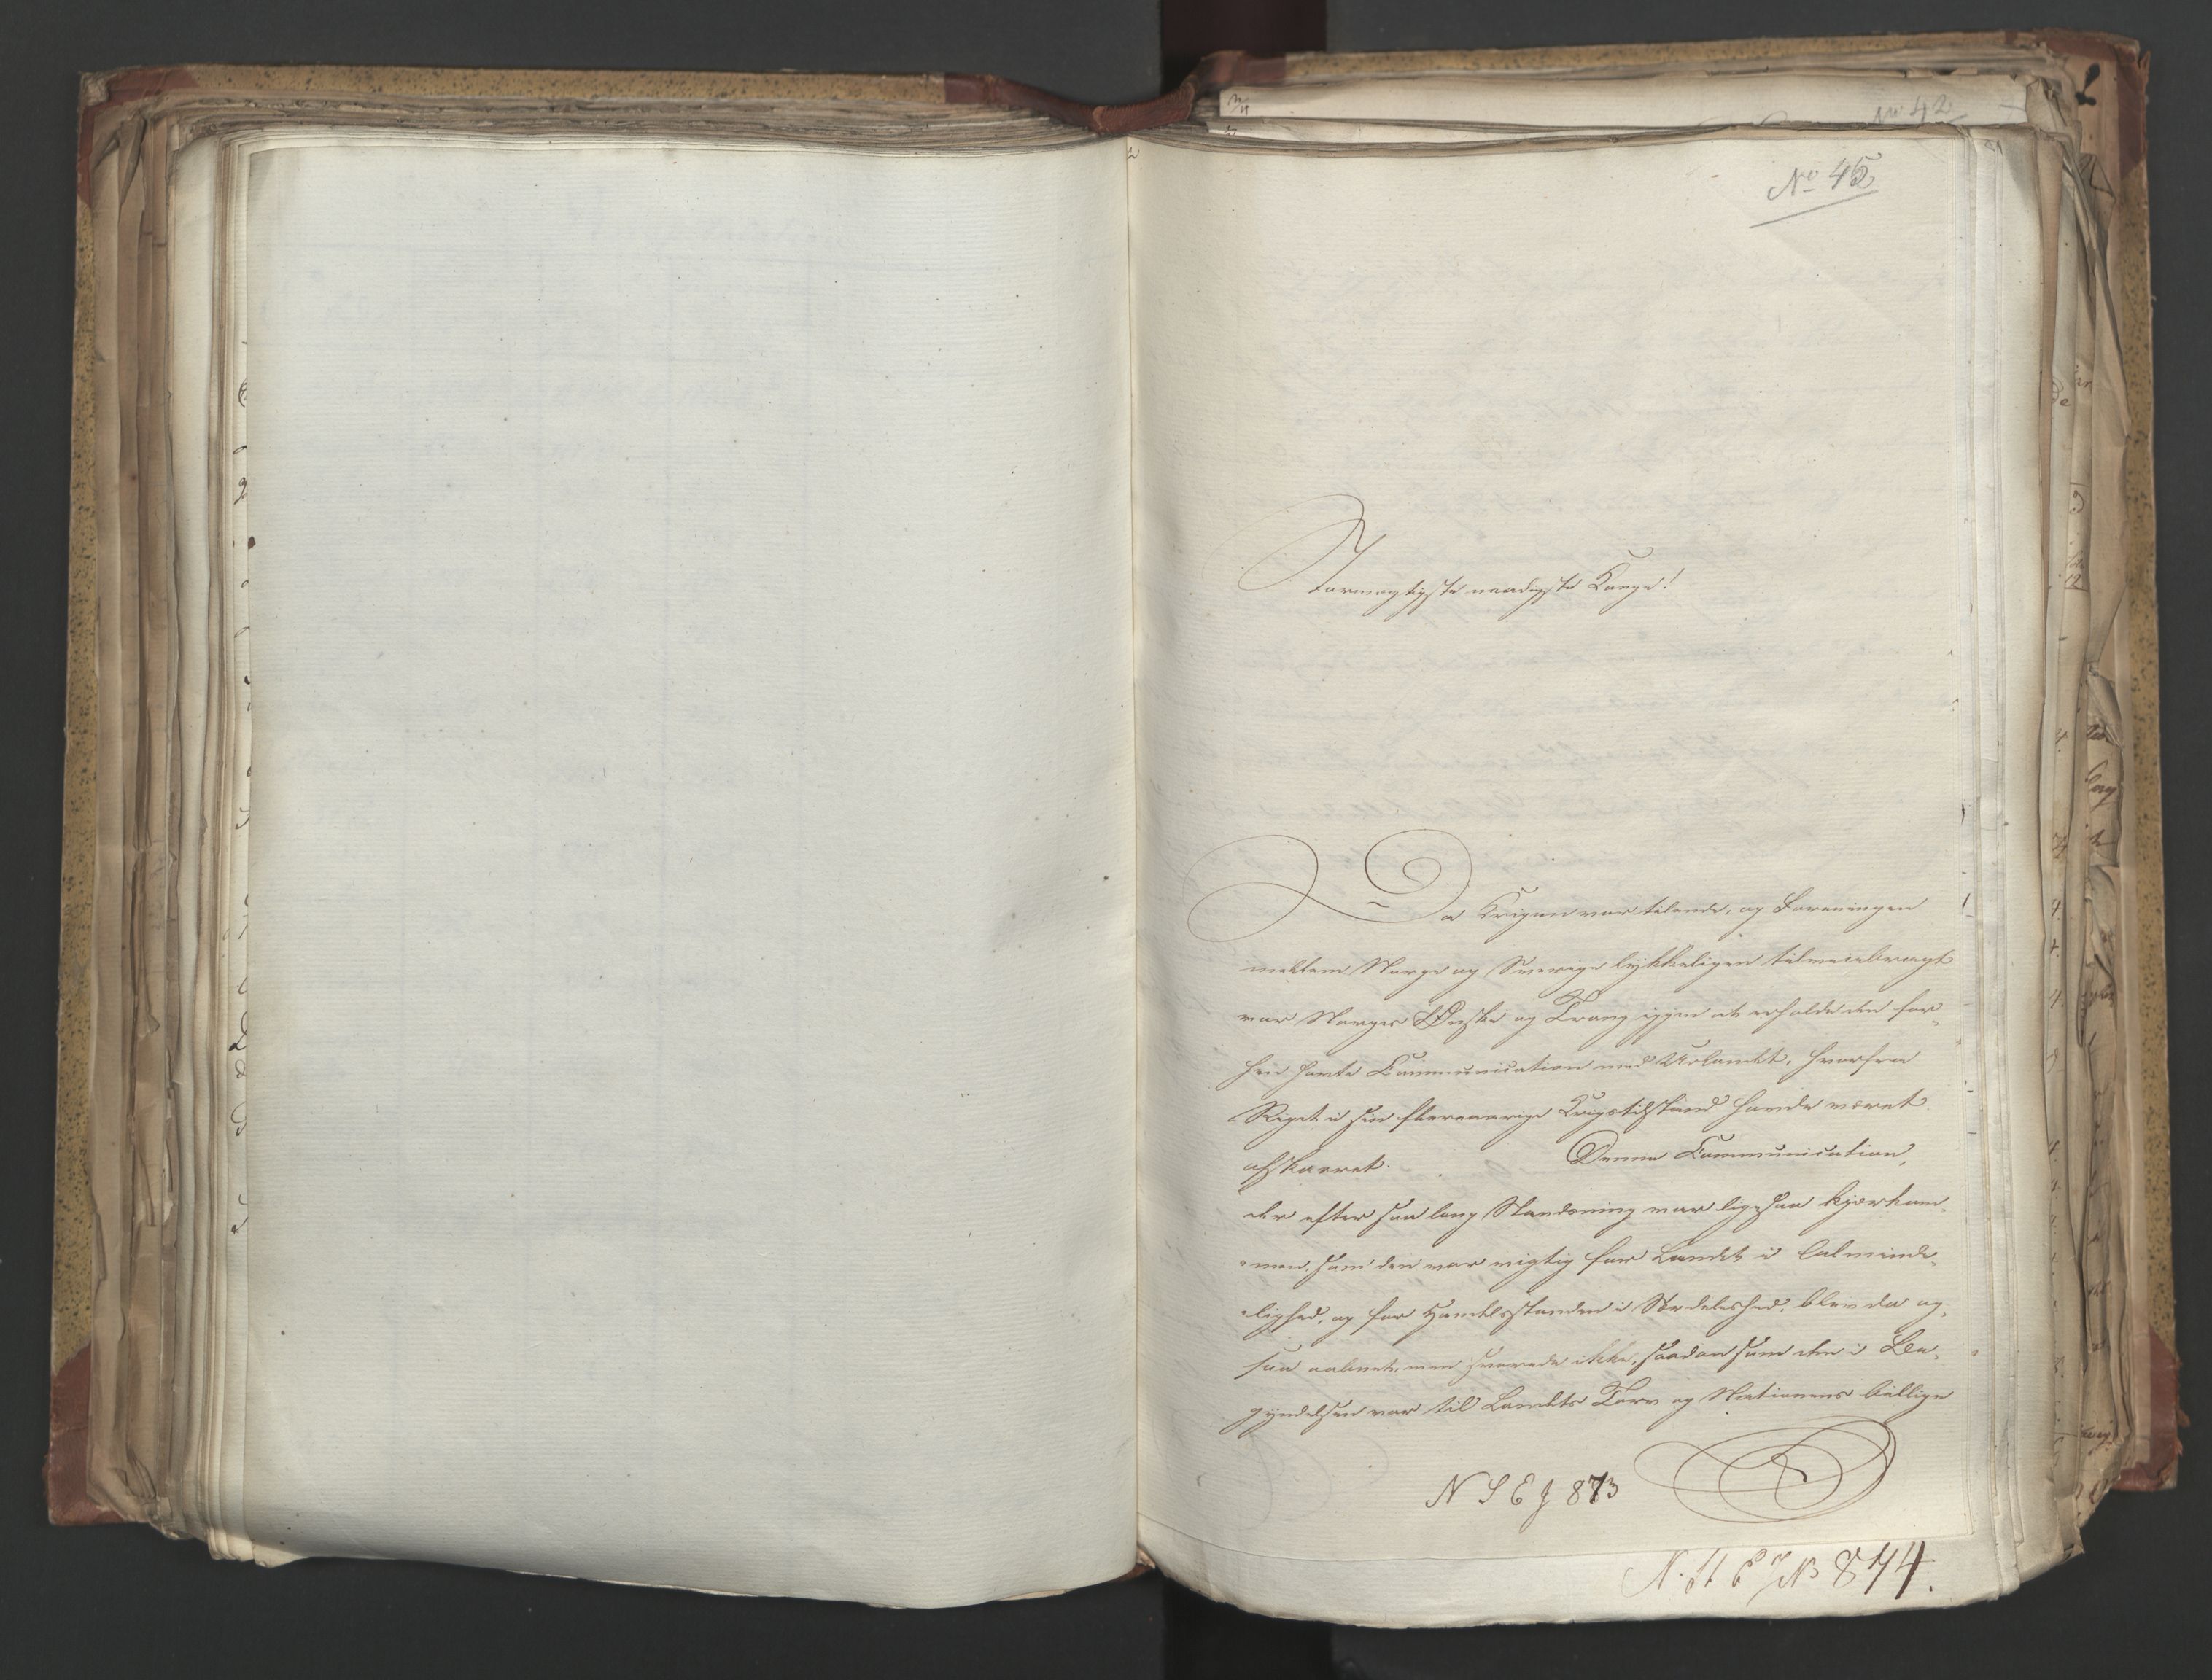 No 45
Stormægtigste naadigste Konge!
Da Krigen var tilende, og Foreningen
mellem Norge og Sverige lykkeligen tilveiebragt
var Norges Ønske og Trang igjen at erholde den for-
hen havte Communication med Udlandet, hvorfra
Riget i sin fleeraarige Krigstilstand havde været
afskaaret. Denne Communication,
der efter saa lang Standsning var ligesaa kjærkom-
men, som den var vigtig for Landet i Calminde-
lighed, og for Handelsstanden i Særdeleshed, blev da og-
saa aabnet, men svarede ikke, saadan som den i Be-
gyndelsen var til Landets Tarv og Nationens billige
N S E J 873
N. St E J No 874.